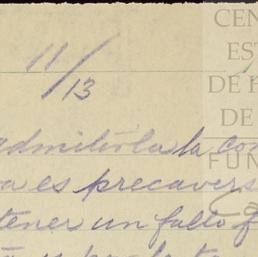 11/13
CEN
ES
DE
DE
admitirla la con
a es precavers
tener un fallo f
FUN
Ca